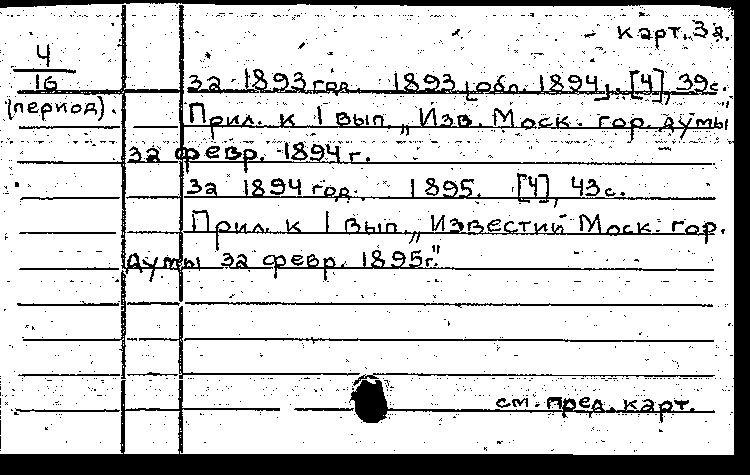 карт. 3а.
4
16
(период).
за 1893 год. 1893 [обл. 1894]. [4], 39с.
Прил. к 1 вып. „Изв. Моск. гор. думы"
за февр. 1894 г.
за 1894 год. 1895. [4], 43с.
Прил. к 1 вып. „Известий Моск. гор.
думы за февр. 1895г."
см. пред. карт.